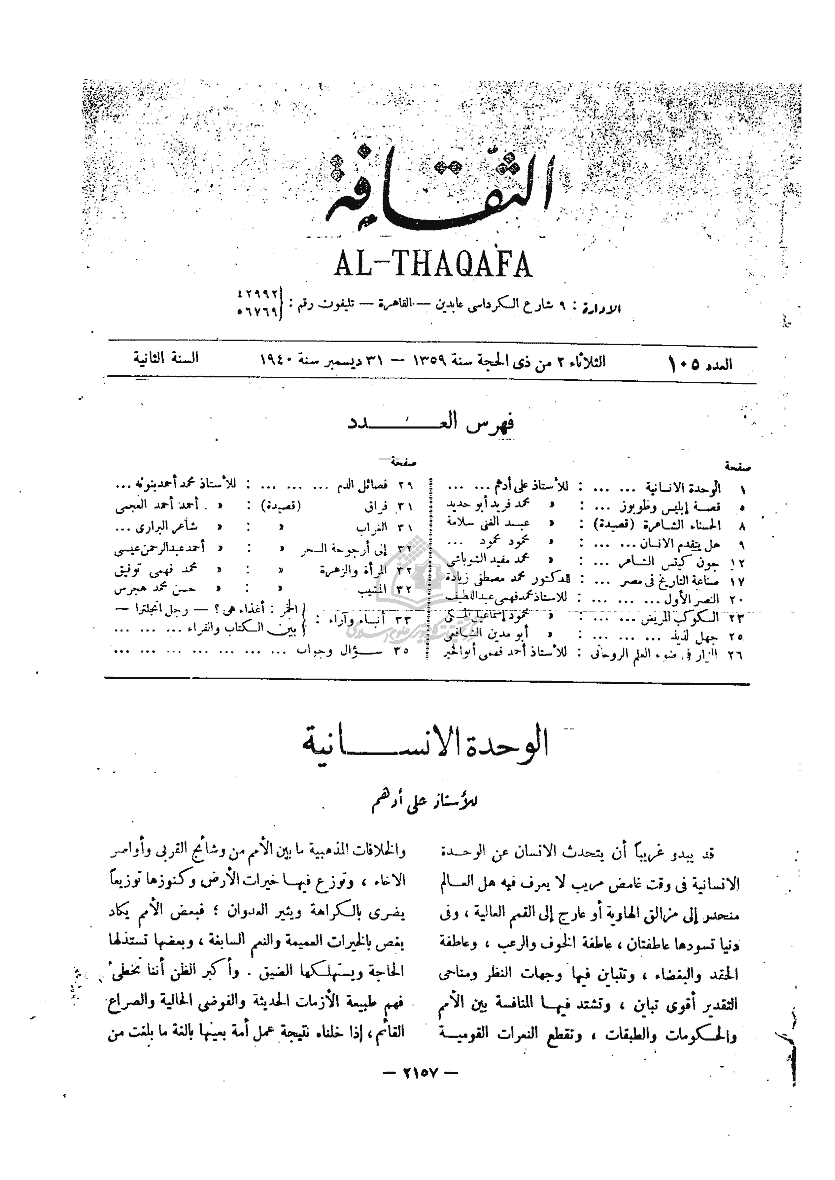 الثقافة
AL-THAQAFA
الادارة : ٩ شارع الكرداسى عابدين — القاهرة — تليفون رقم : ٤٢٩٩٢
٥٦٧٦٩
العدد ١٠٥
الثلاثاء ٢ من ذى الحجة سنة ١٣٥٩ — ٣١ ديسمبر سنة ١٩٤٠
السنة الثانية
فهرس العـــدد
صفحة
١ الوحدة الانسانية ... ... : للأستاذ على أدهم ... ...
٥ قصة إبليس وظوبوز ... : » محمد فريد أبو حديد
٨ الحسناء الشاعرة (قصيدة) : » عبد الغنى سلامة
٩ هل يتقدم الانسان ... ... : » محمود محمود ...
١٢ جون كيتس الشاعر ... : » محمد مفيد الشوباشى
١٧ صناعة التاريخ فى مصر ... : للدكتور محمد مصطفى زيادة
٢٠ النصر الأول ... ... ... : للأستاذ محمد فهمى عبد اللطيف
٢٣ الكوكب المريض ... ... : » محمود إسماعيل
٢٥ جهل لذيذ ... ... ... : » أبو مدين الشافعى
٢٦ النار فى ضوء العلم الروحانى : للأستاذ أحمد فهمى أبو الخير
صفحة
٢٩ فصائل الدم ... ... ... : للأستاذ محمد أحمد بنونه ...
٣١ فراق (قصيدة) : » . أحمد أحمد العجمى
٣١ الغراب » : » شاعر البرارى ...
٣٢ إلى أرجوحة السحر » : » أحمد عبد الرحمن عيسى
٣٢ المرأة والزهرة » : » محمد فهمى توفيق
٣٢ المشيب » : » حسن محمد هجرس
٣٣ أنباء وآراء : الخمر : أغذاء هى ؟ — رجل انجلترا —
بين الكتاب والقراء ... ... ...
٣٥ سؤال وجواب ... ... ... ... ... ... ...
الوحدة الانســـانية
للأستاذ على أدهم
قد يبدو غريباً أن يتحدث الانسان عن الوحدة
الانسانية فى وقت غامض مريب لا يعرف فيه هل العالم
منحدر إلى مزالق الهاوية أو عارج إلى القمم العالية ، وفى
دنيا تسودها عاطفتان ، عاطفة الخوف والرعب ، وعاطفة
الحقد والبغضاء ، وتتباين فيها وجهات النظر ومناحى
التقدير أقوى تباين ، وتشتد فيها المنافسة بين الأمم
والحكومات والطبقات ، وتقطع النعرات القومية
والخلافات المذهبية ما بين الأمم من وشائج القربى وأواصر
الاخاء ، وتوزع فيها خيرات الأرض وكنوزها توزيعاً
يضرى بالكراهة ويثير العدوان ؛ فبعض الأمم يكاد
يغص بالخيرات العميمة والنعم السابغة ، وبعضها تستذلها
الحاجة ويستهلكها الضيق . وأكبر الظن أننا نخطىء
فهم طبيعة الأزمات الحديثة والفوضى الحالية والصراع
القائم ، إذا خلناه نتيجة عمل أمة بعينها بالغة ما بلغت من
— ٢١٥٧ —